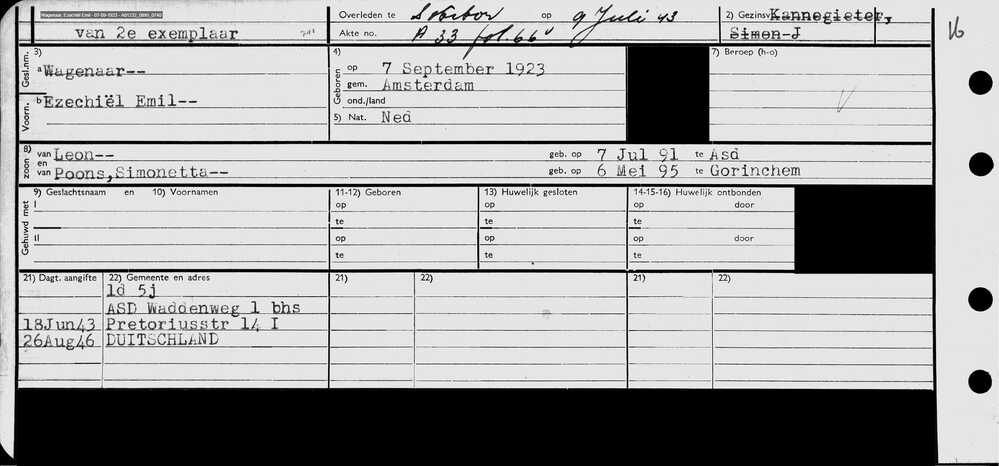 Wagenaar, Ezechiel Emil - 07-09-1923 - A01232_0880_0740
van 2e exemplaar
Overleden te Sobibor op 9 Juli 43
Akte no. A 33 fol. 66v
2) Gezinsv Kannegieter,
Simon-J
Gesl.nm. 3)
a Wagenaar--
Voorn.
b Ezechiël Emil--
Geboren 4)
op 7 September 1923
gem. Amsterdam
ond./land
5) Nat. Ned
7) Beroep (h-o)
V
8) zoon
van Leon-- geb. op 7 Jul 91 te Asd
en
van Poons, Simonetta-- geb. op 6 Mei 95 te Gorinchem
Gehuwd met
9) Geslachtsnaam en 10) Voornamen 11-12) Geboren 13) Huwelijk gesloten 14-15-16) Huwelijk ontbonden
I op op op door
te te te
II op op op door
te te te
21) Dagt. aangifte 22) Gemeente en adres 21) 22) 21) 22)
ld 5j
ASD Waddenweg 1 bhs
18Jun43 Pretoriusstr 14 I
26Aug46 DUITSCHLAND